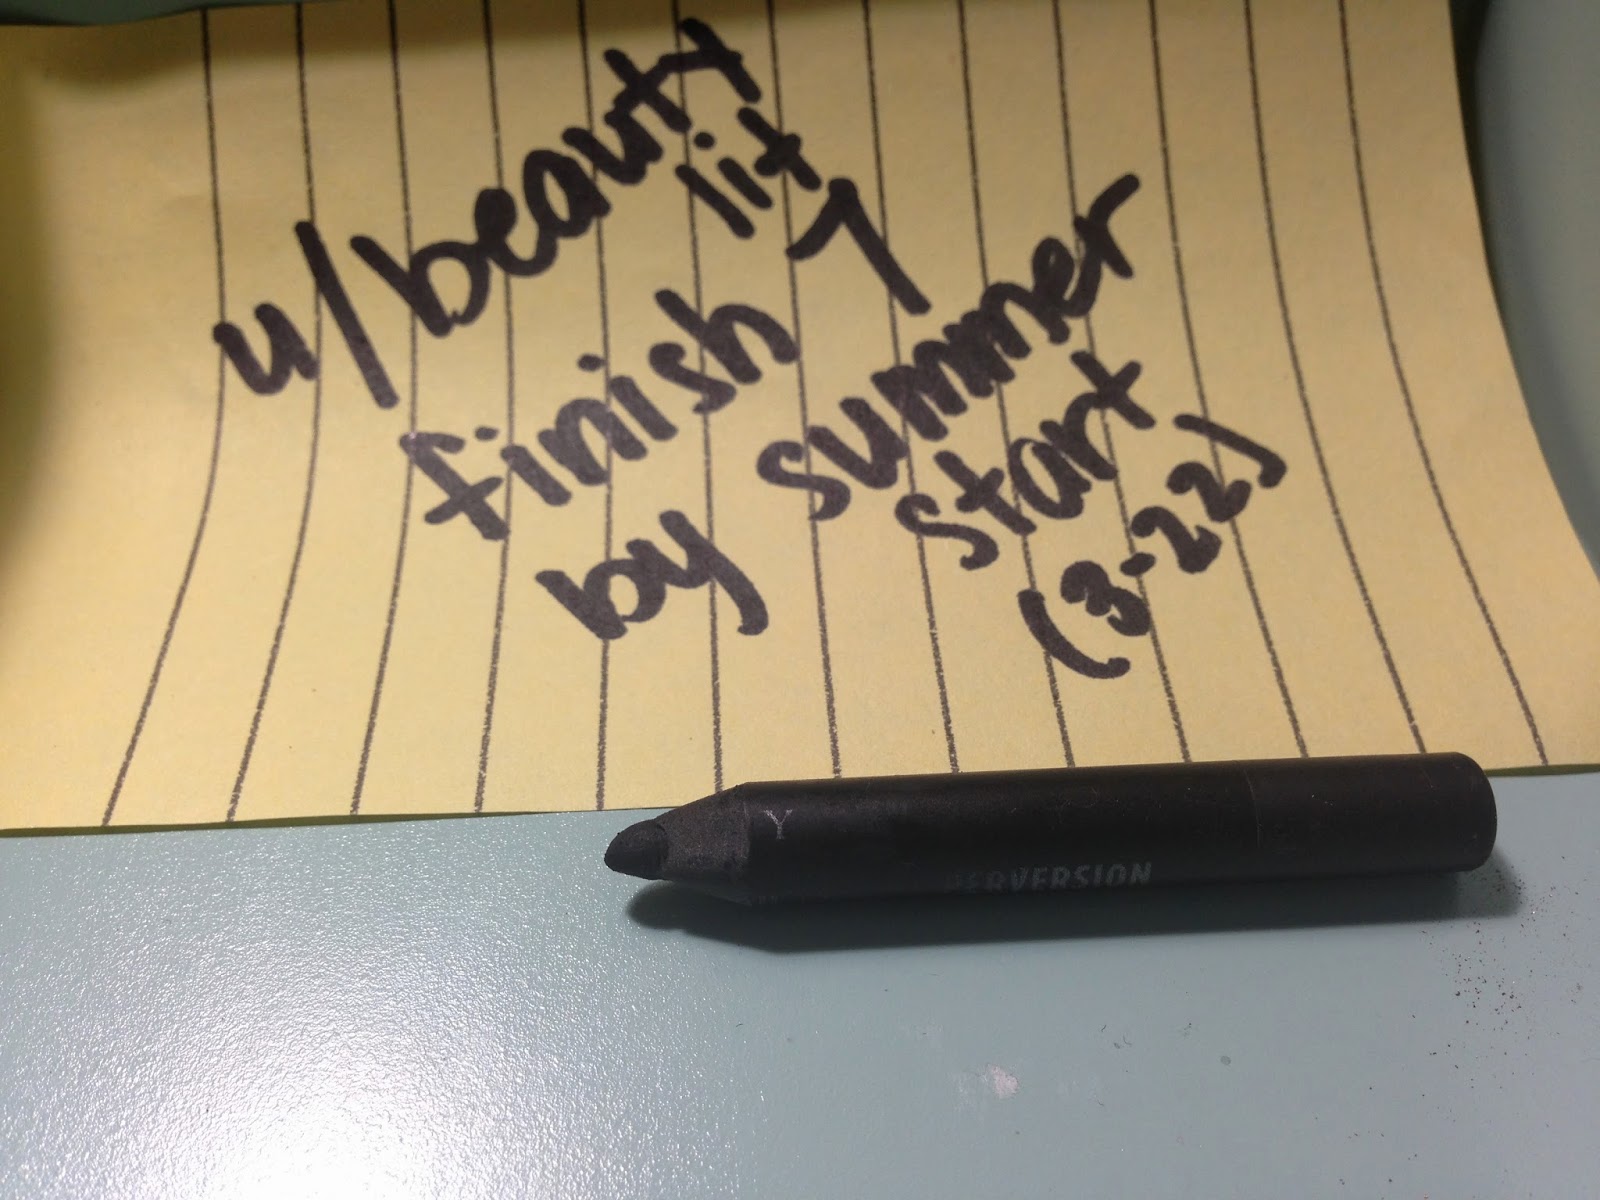 u/beauty
lit
finish 7
by summer
start
(3-22)
Y
PERVERSION